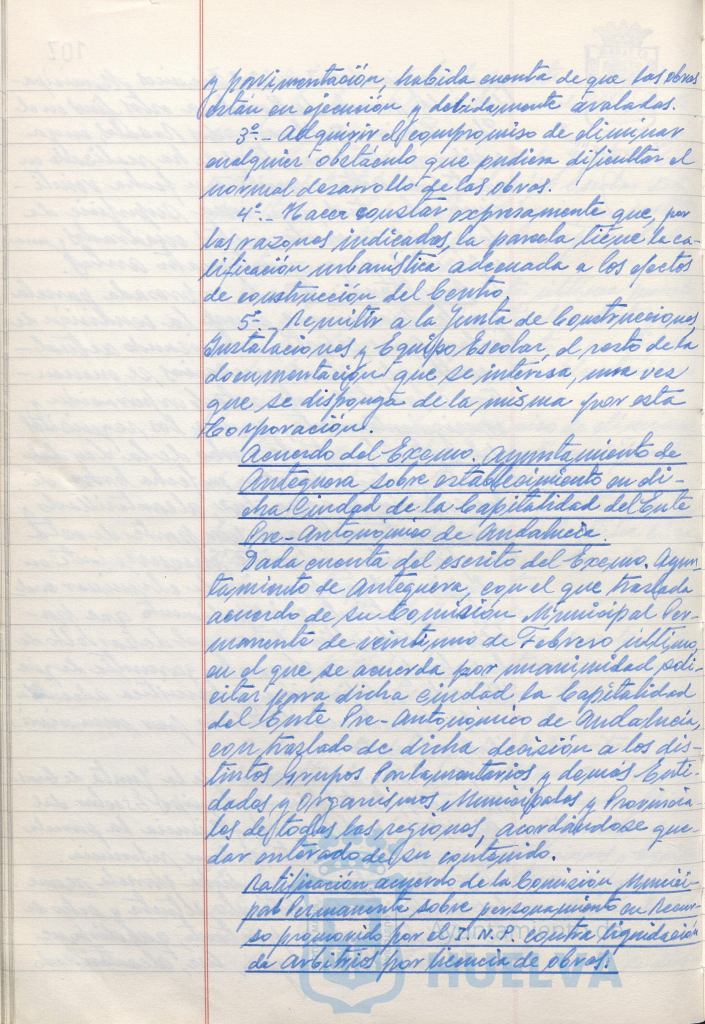 y pavimentación, habida cuenta de que las obras
están en ejecución y debidamente avaladas.
3º.- Adquirir el compromiso de eliminar
cualquier obstáculo que pudiera dificultar el
normal desarrollo de las obras.
4º.- Hacer constar expresamente que, por
las razones indicadas, la parcela tiene la ca-
lificación urbanística adecuada a los efectos
de construcción del Centro.
5º.- Remitir a la Junta de Construcciones,
Instalaciones y Equipo Escolar, el resto de la
documentación que se interesa, una vez
que se disponga de la misma por esta
Corporación.
Acuerdo del Excmo. Ayuntamiento de
Antequera sobre establecimiento en di-
cha Ciudad de la Capitalidad del Ente
Pre-Autonómico de Andalucía.
Dada cuenta del escrito del Excmo. Ayun-
tamiento de Antequera, con el que traslada
acuerdo de su Comisión Municipal Per-
manente de veintiuno de Febrero último,
en el que se acuerda por unanimidad soli-
citar para dicha ciudad la Capitalidad
del Ente Pre-Autonómico de Andalucía,
con traslado de dicha decisión a los dis-
tintos Grupos Parlamentarios y demás Enti-
dades y Organismos Municipales y Provincia-
les de todas las regiones, acordándose que-
dar enterado de su contenido.
Ratificación acuerdo de la Comisión Munici-
pal Permanente sobre personamiento en Recur-
so promovido por el I.N.P. contra liquidación
de Arbitrios por licencia de obras.
Ayuntamiento de
HUELVA